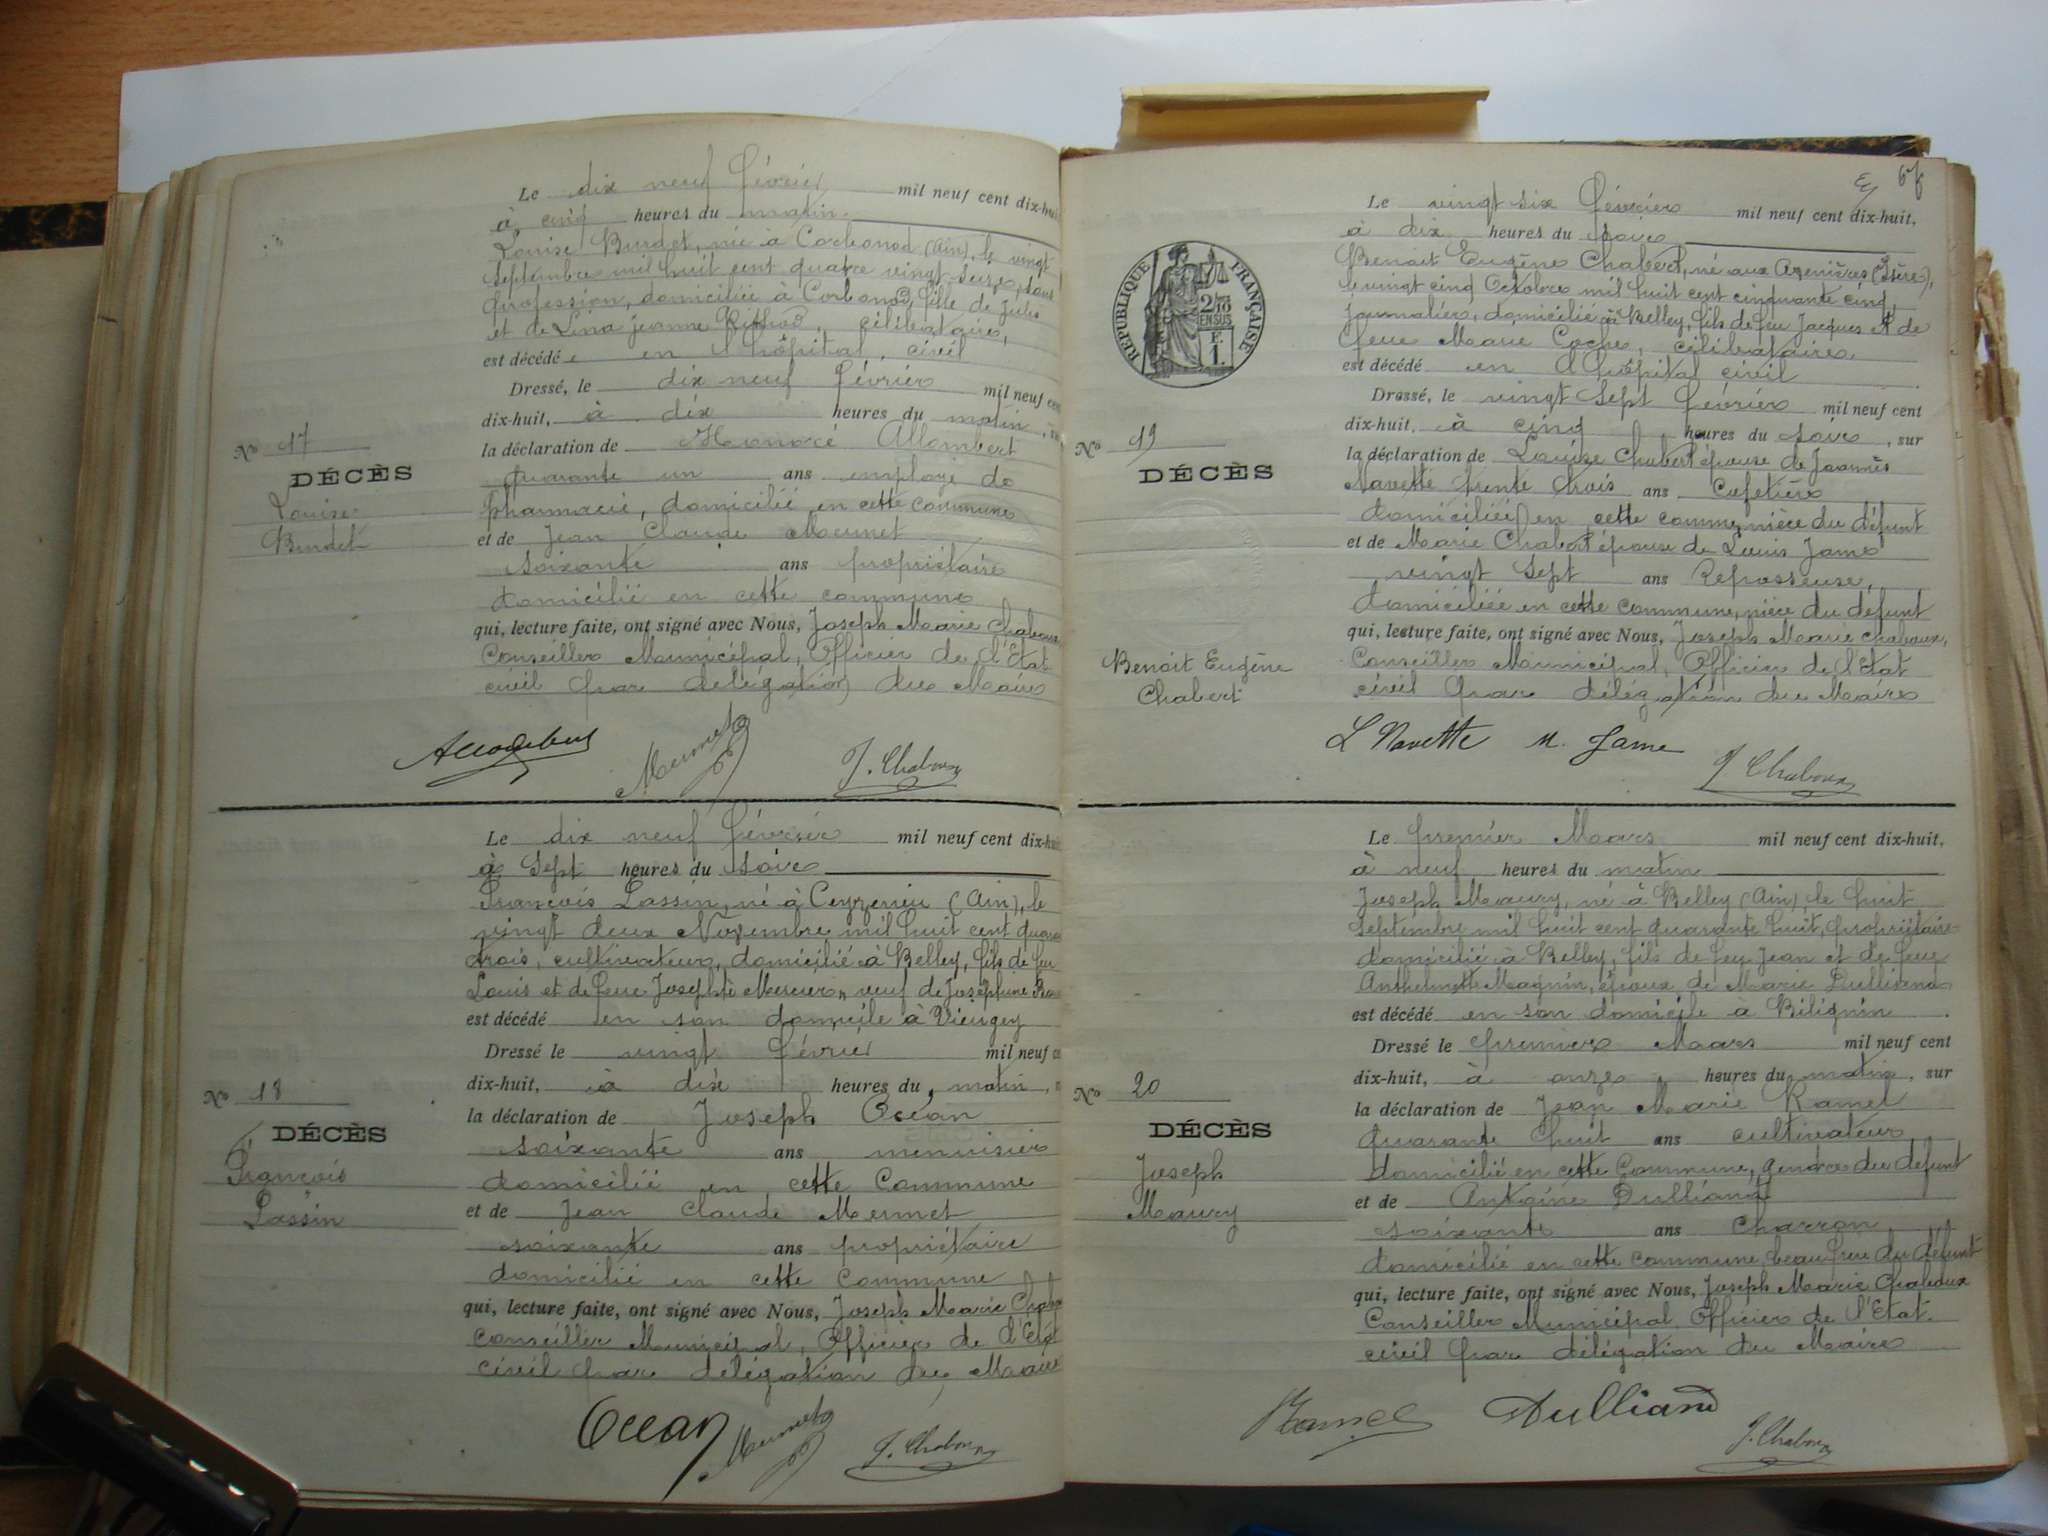 Le dix neuf février mil neuf cent dix-hui
à cinq heures du matin
Louise Burdet, née à Corbonod (Ain), le vingt
septembre mil huit cent quatre vingt seize, sans
profession, domiciliée à Corbonod, fille de Jules
et de Lina Jeanne, célibataire,
est décédée en l'hôpital civil
Dressé, le dix neuf février mil neuf cen
dix-huit, à dix heures du matin,
No 17
la déclaration de Honoré Allombert
DÉCÈS
quarante un ans employé de
Louise
pharmacie, domicilié en cette commune
Burdet
et de Jean Claude Mermet
soixante ans propriétaire
domicilié en cette commune
qui, lecture faite, ont signé avec Nous, Joseph Marie Chaboux
Conseiller Municipal, Officier de l'Etat
civil par délégation du Maire
Mermet J. Chaboux
Le dix neuf février mil neuf cent dix-hui
à sept heures du soir
François Lassin, né à Ceyzérieu (Ain), le
vingt deux Novembre mil huit cent quaran
trois, cultivateur, domicilié à Belley, fils de feu
Louis et de feue Josephte Mercier, veuf de Joséphine
est décédé en son domicile à Vieugey
Dressé le vingt février mil neuf ce
dix-huit, à dix heures du matin,
No 18
la déclaration de Joseph Occan
DÉCÈS
soixante ans menuisier
François
domicilié en cette Commune
Lassin
et de Jean Claude Mermet
soixante ans propriétaire
domicilié en cette Commune
qui, lecture faite, ont signé avec Nous, Joseph Marie Chabo
Conseiller Municipal, Officier de l'Etat
civil par délégation du Maire
Occan Mermet J. Chaboux
Le vingt six février mil neuf cent dix-huit,
à dix heures du soir
Benoit Eugène Chabert, né aux Avenières (Isère),
le vingt cinq Octobre mil huit cent cinquante cinq,
journalier, domicilié à Belley, fils de feu Jacques et de
feue Marie Coche, célibataire
est décédé en l'hôpital civil
RÉPUBLIQUE FRANÇAISE
2/10 EN SUS
F. 1.
Dressé, le vingt sept février mil neuf cent
dix-huit, à cinq heures du soir, sur
No 19
la déclaration de Louise Chabert épouse de Joannès
DÉCÈS
Navette trente trois ans Cafetière
domiciliée en cette comme, nièce du défunt
et de Marie Chabert épouse de Louis Jame
vingt sept ans Repasseuse,
domiciliée en cette commune, nièce du défunt
qui, lecture faite, ont signé avec Nous, Joseph Marie Chaboux,
Benoit Eugène
Chabert
Conseiller Municipal, Officier de l'Etat
civil par délégation du Maire
L Navette M. Jame J. Chaboux
Le premier Mars mil neuf cent dix-huit,
à neuf heures du matin
Joseph Maury, né à Belley (Ain), le huit
septembre mil huit cent quarante huit, propriétaire
domicilié à Belley, fils de feu Jean et de feue
Anthelmette Magnin, époux de Marie Dulliand
est décédé en son domicile à Bilignin
Dressé le premier Mars mil neuf cent
dix-huit, à onze heures du matin, sur
No 20
la déclaration de Jean Marie Ramel
DÉCÈS
quarante huit ans cultivateur
Joseph
domicilié en cette Commune, gendre du défunt
Maury
et de Antoine Dulliand
soixante ans Charron
domicilié en cette commune, beau frère du défunt
qui, lecture faite, ont signé avec Nous, Joseph Marie Chaboux
Conseiller Municipal, Officier de l'Etat
civil par délégation du Maire
Ramel Dulliand J. Chaboux